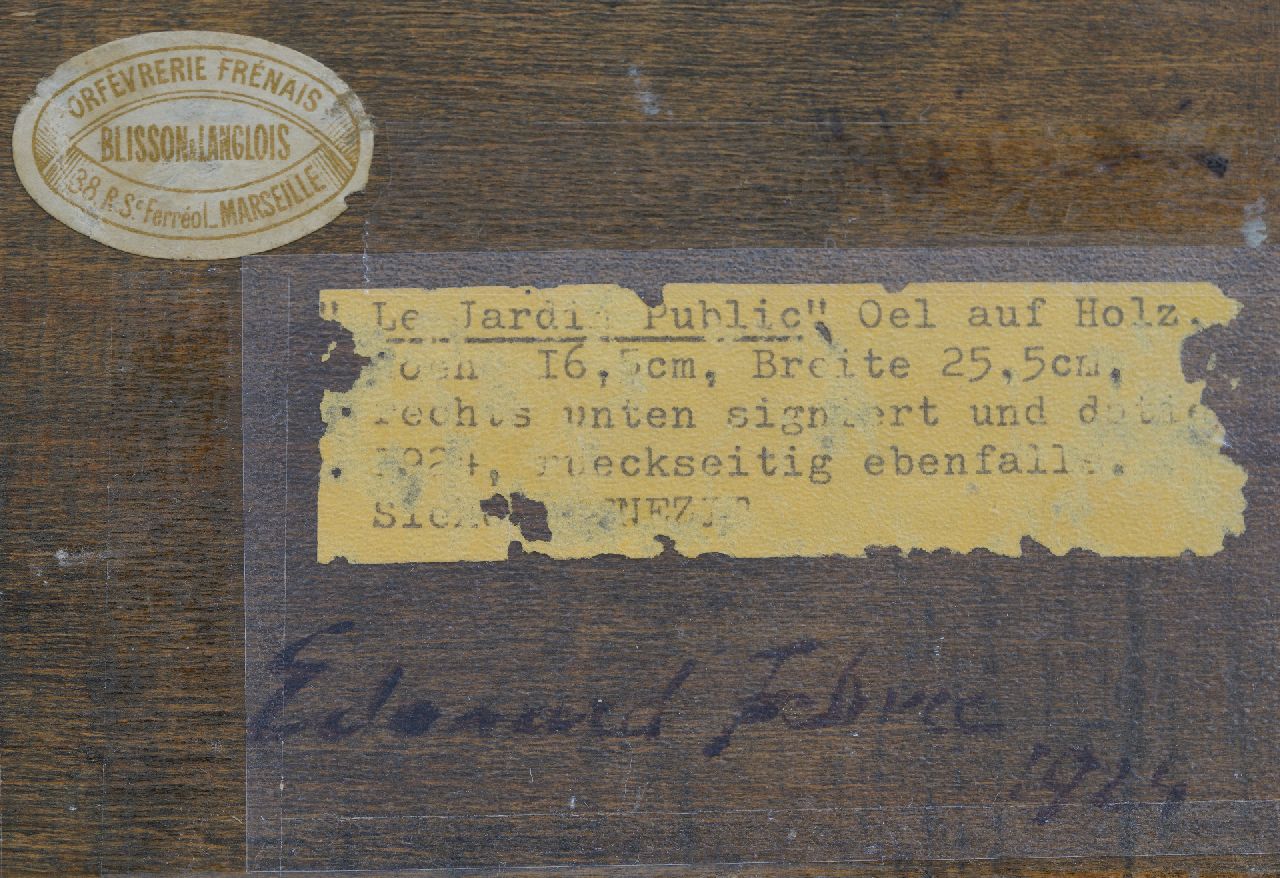 ORFÈVRERIE FRÉNAIS
BLISSON & LANGLOIS
38, R. St Ferréol_MARSEILLE
" Le Jardin Public" Oel auf Holz.
16,5cm, Breite 25,5cm,
rechts unten signiert und
1924, rueckseitig ebenfalls.
Edouard Febvre
1924